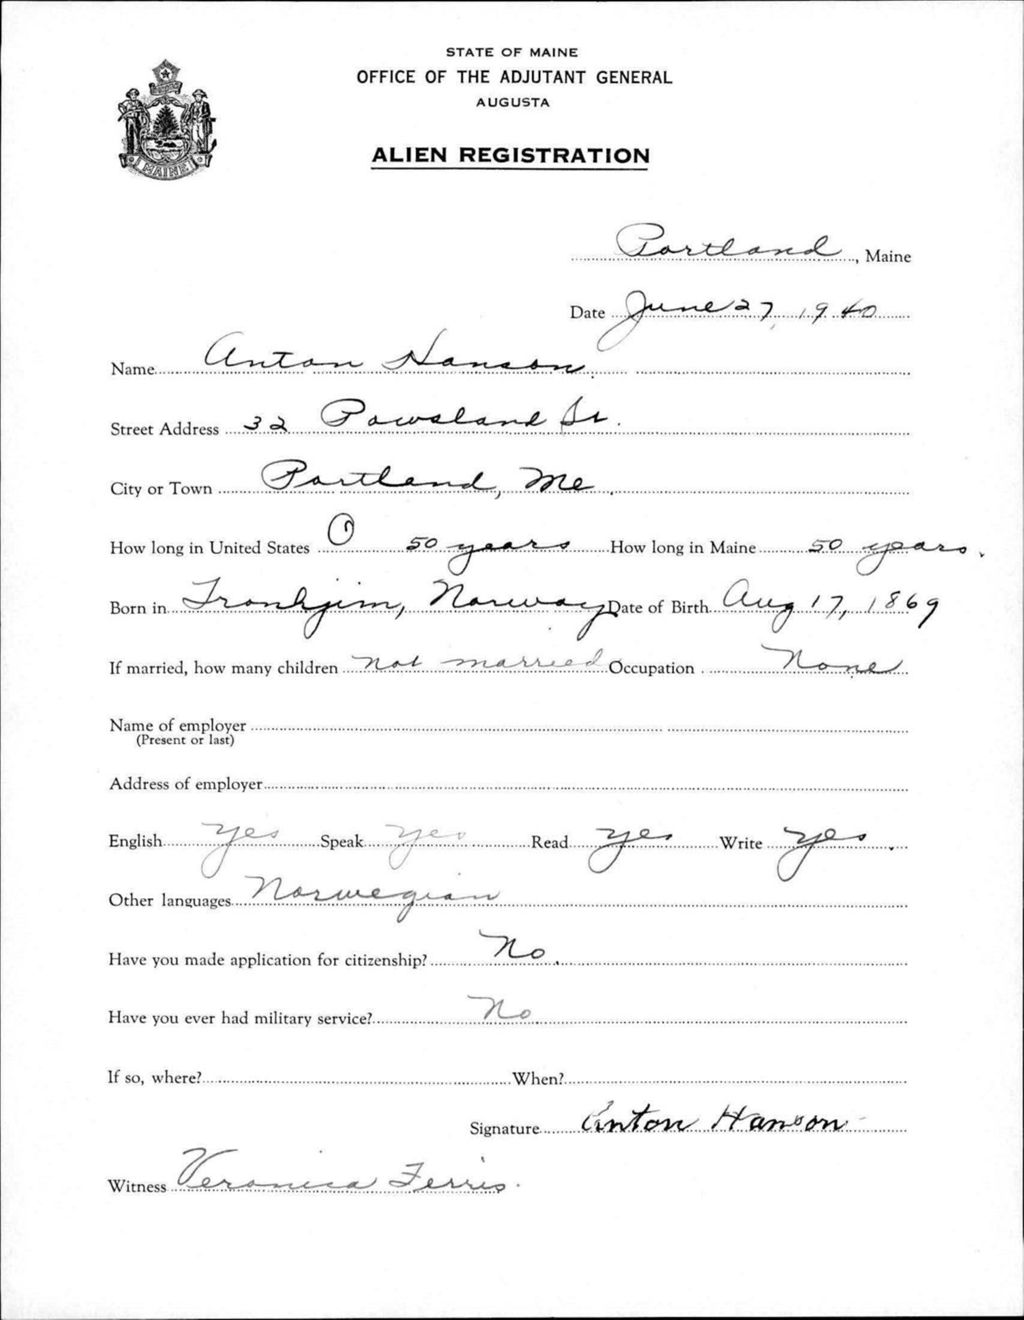 STATE OF MAINE
OFFICE OF THE ADJUTANT GENERAL
AUGUSTA
ALIEN REGISTRATION
MAINE
Portland, Maine
Date June 27, 1940
Name Anton Hanson
Street Address 32 Powsland St.
City or Town Portland, Me.
How long in United States 50 years How long in Maine 50 years.
Born in Tronhjim, Norway Date of Birth Aug 17, 1869
If married, how many children not married Occupation None
Name of employer
(Present or last)
Address of employer
English yes Speak yes Read yes Write yes.
Other languages Norwegian
Have you made application for citizenship? No.
Have you ever had military service? No
If so, where? When?
Signature Anton Hanson
Witness Veronica Ferris.